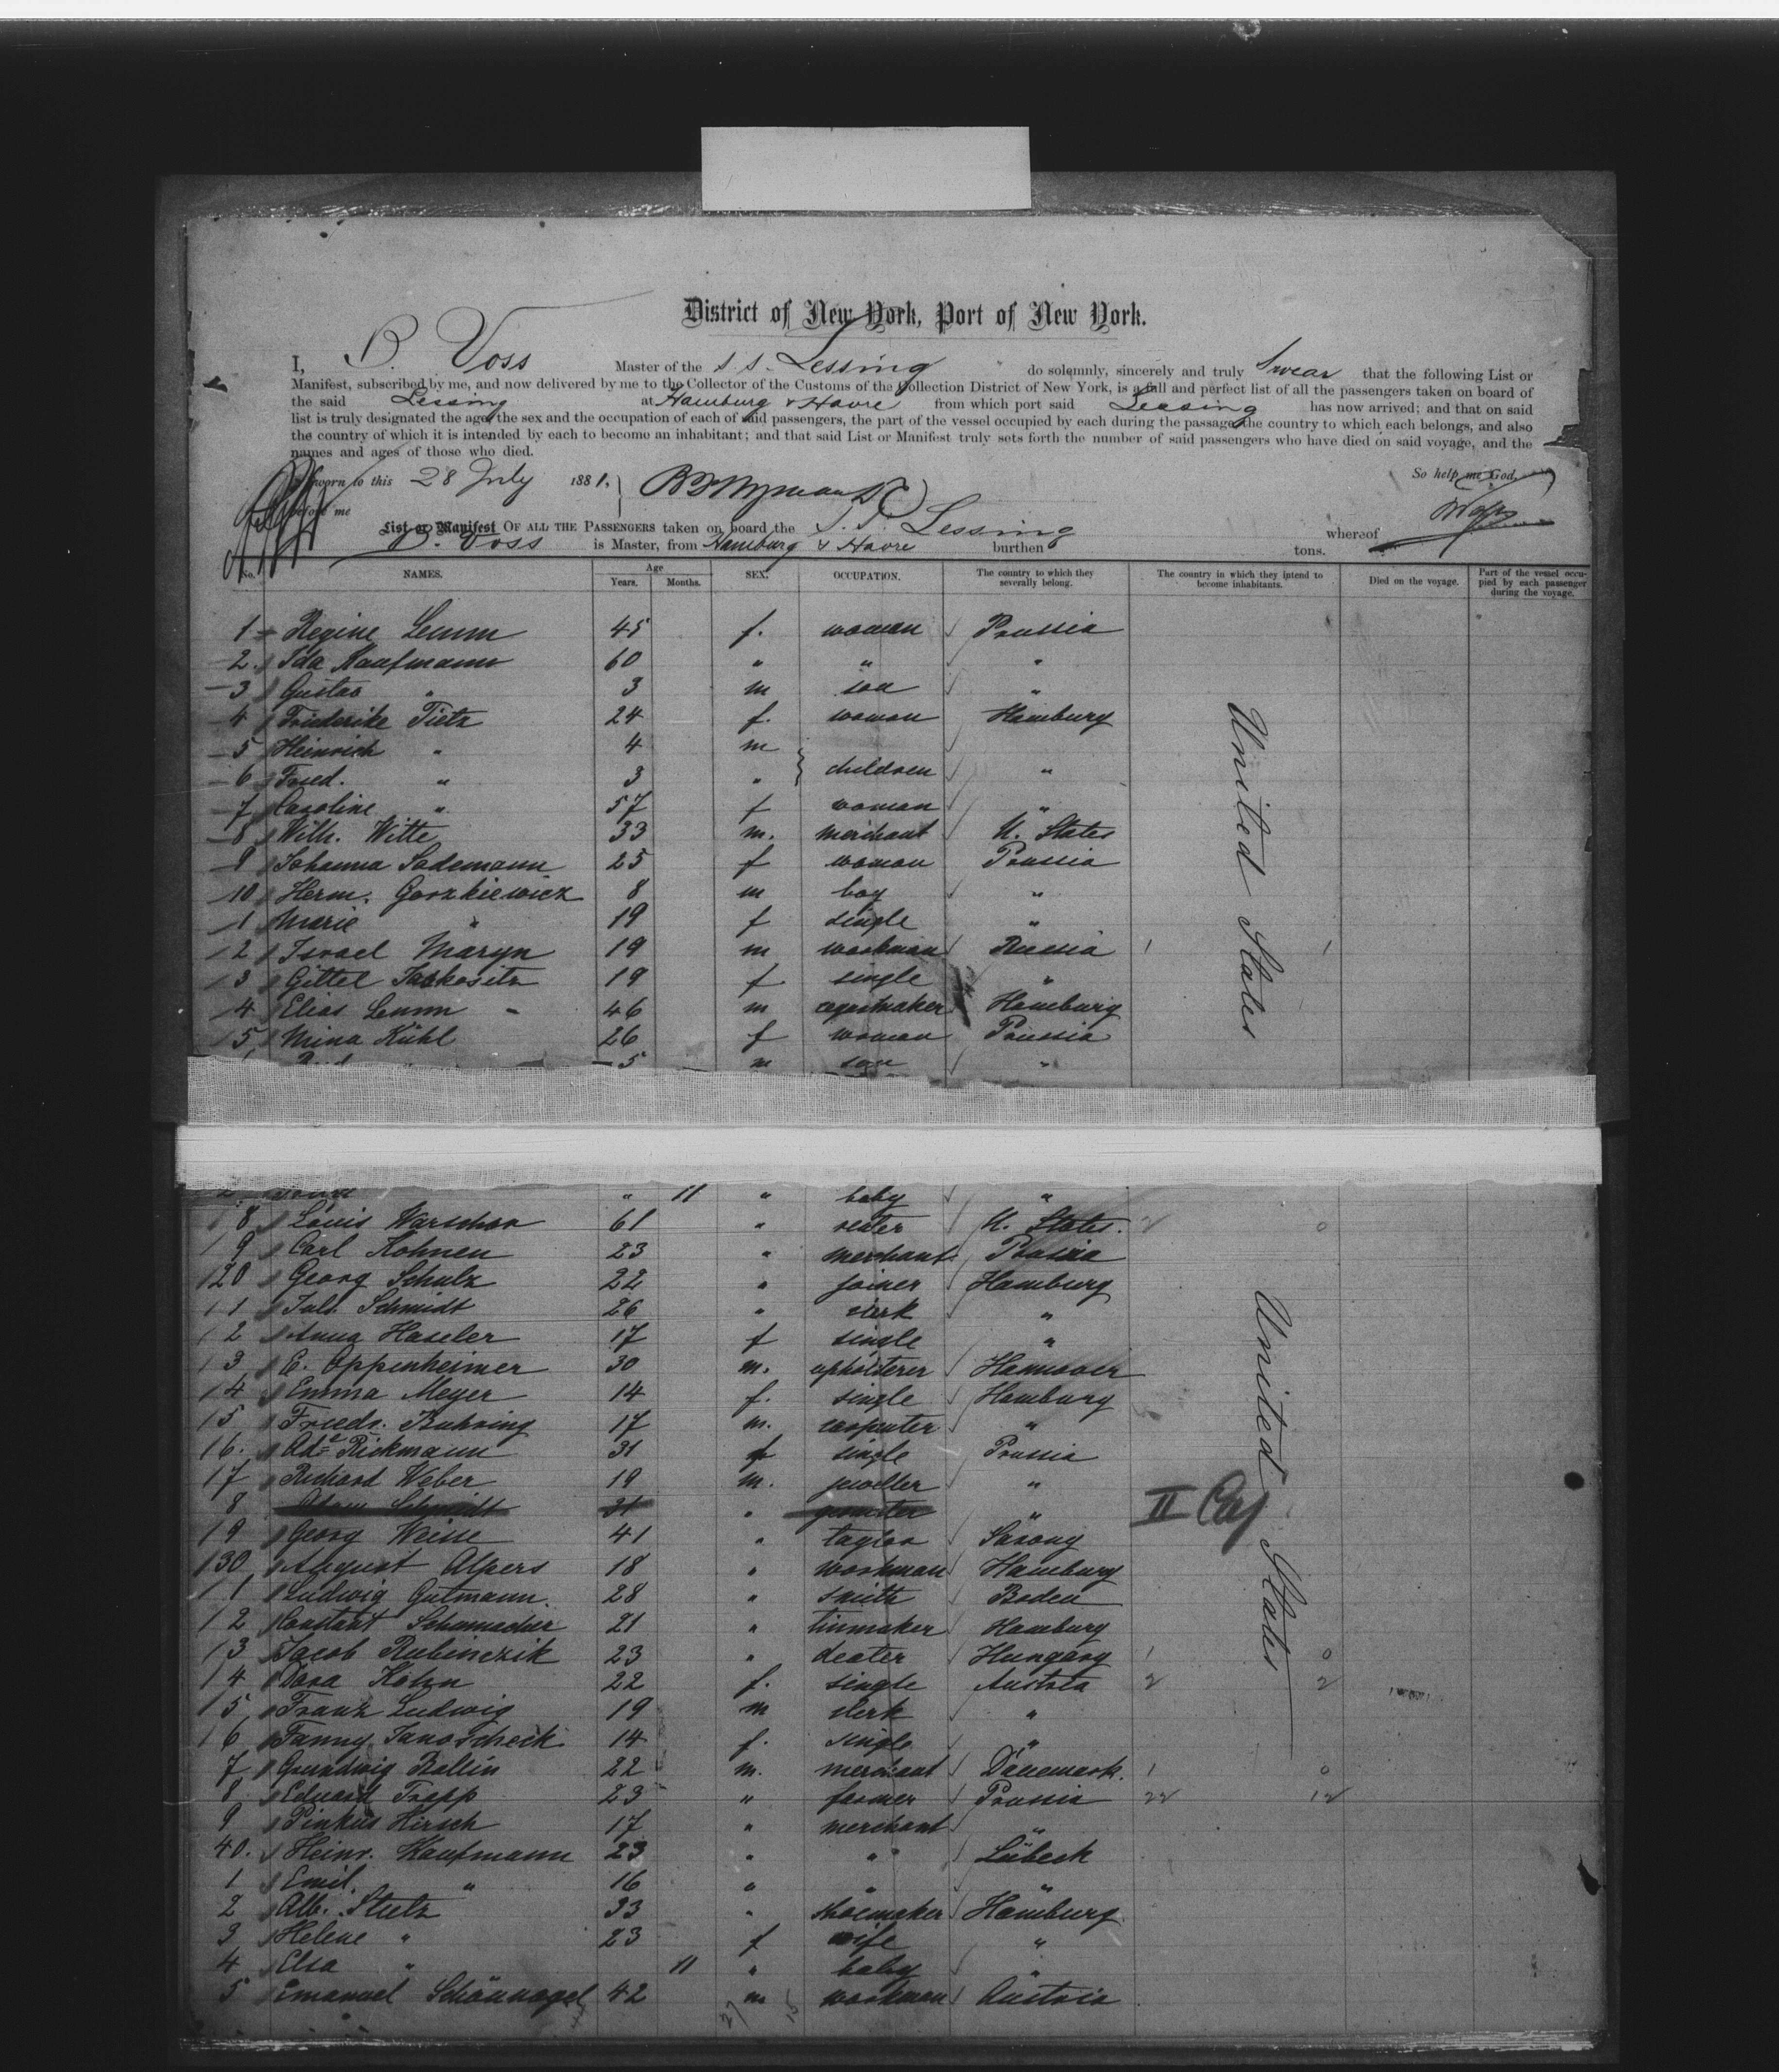 District of New York, Port of New York.
I, B. Voss Master of the S. S. Lessing do solemnly, sincerely and truly Swear that the following List or
Manifest, subscribed by me, and now delivered by me to the Collector of the Customs of the Collection District of New York, is a full and perfect list of all the passengers taken on board of
the said Lessing at Hamburg & Havre from which port said Lessing has now arrived; and that on said
list is truly designated the age, the sex and the occupation of each of said passengers, the part of the vessel occupied by each during the passage, the country to which each belongs, and also
the country of which it is intended by each to become an inhabitant; and that said List or Manifest truly sets forth the number of said passengers who have died on said voyage, and the
names and ages of those who died.
So help me God.
Sworn to this 28 July 1881,
before me
List or Manifest OF ALL THE PASSENGERS taken on board the S. S. Lessing whereof
B. Voss is Master, from Hamburg & Havre burthen tons.
No. NAMES. Age Years. Months. SEX. OCCUPATION. The country to which they severally belong. The country in which they intend to become inhabitants. Died on the voyage. Part of the vessel occupied by each passenger during the voyage.
1 Regine Lemm 45 f. woman Prussia
2. Ida Kaufmann 60 " " "
3 Gustav " 3 m son "
4 Friederike Tietz 24 f. woman Hamburg
5 Heinrich " 4 m
6 Fried. " 3 " children "
7 Caroline " 57 f woman "
8 Wilh. Witte 33 m. merchant U. States
9 Johanna Sademann 25 f woman Prussia
10 Herm. Gorzkiewicz 8 m boy "
1 Marie " 19 f single "
2 Israel Maryn 19 m workman Russia
3 Gittel 19 f single "
4 Elias Lemm 46 m Hamburg
5 Mina Kühl 26 f woman Prussia
5 m son "
United States
" 11 " baby "
8 Louis Warschar 61 " U. States.
9 Carl Kohnen 23 " merchant Prussia
20 Georg Schulz 22 " joiner Hamburg
1 Juls. Schmidt 26 " clerk "
2 Anna Haseler 17 f single "
3 E. Oppenheimer 30 m. upholsterer Hannover
4 Emma Meyer 14 f. single Hamburg
5 Friedr. Buhring 17 m. carpenter "
6. Ade Rickmann 31 f single Prussia
7 Richard Weber 19 m. jeweller "
8 Schmidt 31 " "
II Caj
9 Georg Weisse 41 " taylor Saxony
30 August Alpers 18 " workman Hamburg
1 Ludwig Gutmann. 28 " smith Baden
2 Constant Schumacher 21 " tinmaker Hamburg
3 Jacob Rubinczik 23 " dealer Hungary 1 0
4 Dora Kohn 22 f. single Austria 2 2
5 Franz Ludwig 19 m clerk "
6 Fanny Janoscheck 14 f. single "
7 Grundwig Ballin 22 m. merchant Dänemark. 1 0
8 Eduard Trapp 23 " farmer Prussia 22 12
9 Pinkus Hirsch 17 " merchant "
40. Heinr. Kaufmann 23 " " Lübeck
1 Emil " 16 " " "
2 Alb. Stutz 33 " shoemaker Hamburg
3 Helene " 23 f wife "
4 Elsa " 11 " baby "
5 Emanuel Schönnagel 42 m workman Austria
United States